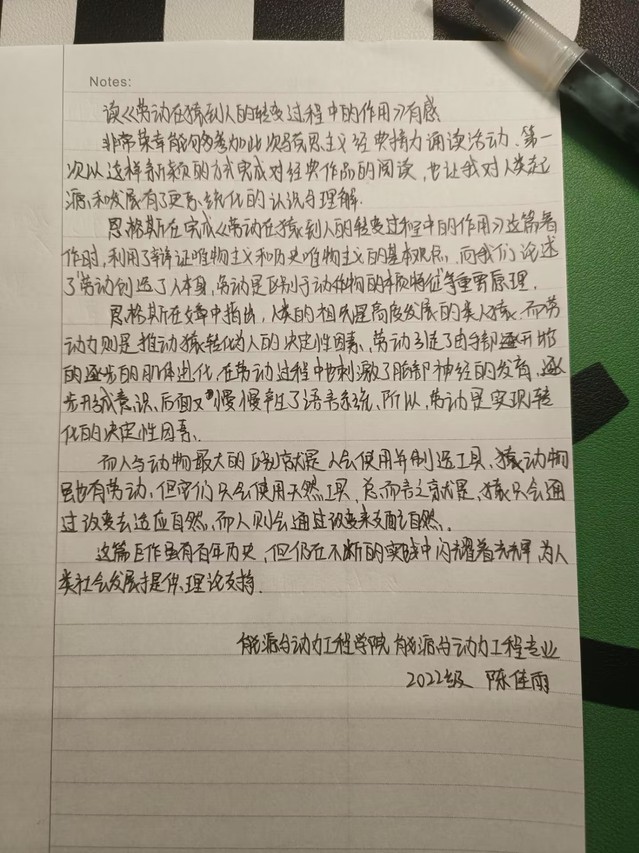 Notes:
读《劳动在猿到人的转变过程中的作用》有感
非常荣幸能够参加此次马克思主义经典接力诵读活动、第一
次以这样新颖的方式完成对经典作品的阅读，也让我对人类起
源和发展有了更系统化的认识与理解.
恩格斯在完成《劳动在猿到人的转变过程中的作用》这篇著
作时，利用了辩证唯物主义和历史唯物主义的基本观点，向我们论述
了"劳动创造了人本身，劳动是区别于动植物的本质特征"等重要原理.
恩格斯在文章中指出，人类的祖先是高度发展的类人猿，而劳
动则是推动猿转化为人的决定性因素、劳动引起了由手部逐开始
的逐步的肌体进化，在劳动过程中也刺激了脑部神经的发育，逐
步形成意识、后面又慢慢产生了语言系统、所以，劳动是实现转
化的决定性因素、
而人与动物最大的区别就是人会使用并制造工具、猿动物
虽也有劳动，但它们只会使用天然工具，总而言之就是，猿只会通
过改变去适应自然，而人则会通过改变来支配自然、
这篇巨作虽有百年历史，但仍在不断的实践中闪耀着光辉，为人
类社会发展提供理论支持.
能源与动力工程学院 能源与动力工程专业
2022级 陈佳雨